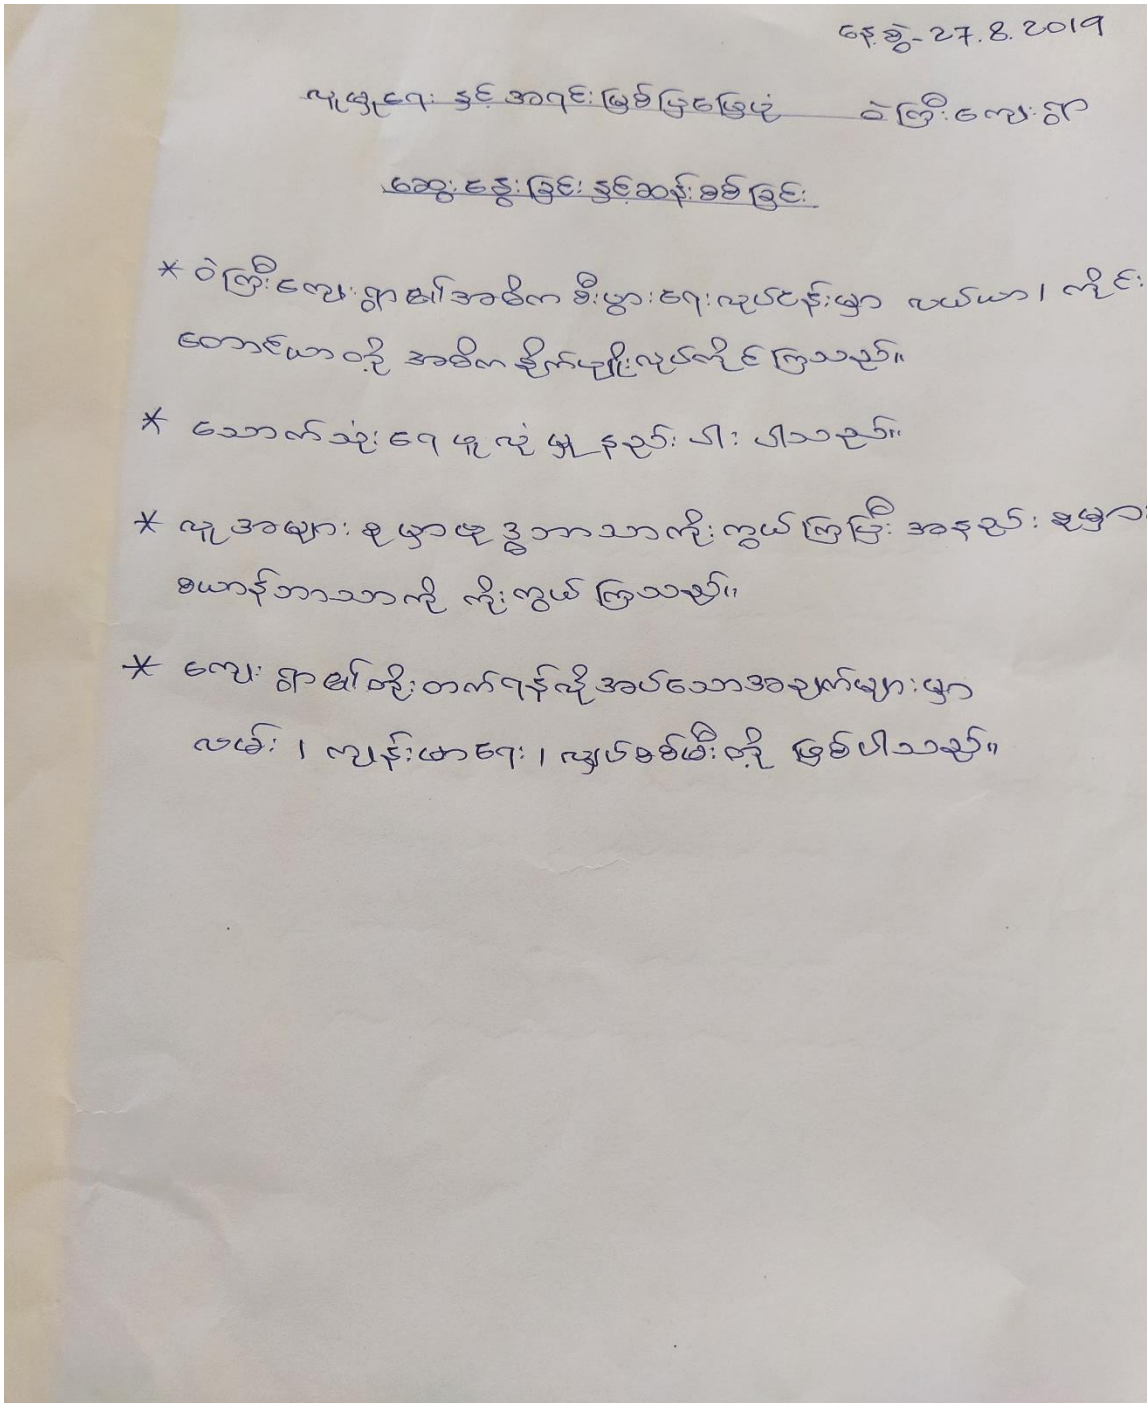 နေ့စွဲ-27.8.2019
လူမှုရေး နှင့် အရင်းမြစ်ပြမြေပုံ ဝဲကြီးကျေးရွာ
ဆွေးနွေးခြင်း နှင့်ဆန်းစစ်ခြင်း
* ဝဲကြီးကျေးရွာ၏အဓိက စီးပွားရေးလုပ်ငန်းမှာ လယ်ယာ၊ ကိုင်း
တောင်ယာ တို့ အဓိက စိုက်ပျိုးလုပ်ကိုင် ကြသည်။
* သောက်သုံးရေ ဖူလုံမှု နည်းပါး ပါသည်။
* လူအများ စုမှာဗုဒ္ဓဘာသာကိုးကွယ်ကြပြီး အနည်း စုမှာ
ခယာန်ဘာသာကို ကိုးကွယ် ကြသည်။
* ကျေးရွာ၏တိုးတက်ရန်လိုအပ်သောအချက်များမှာ
လမ်း ၊ ကျန်းမာရေး ၊ လျှပ်စစ်မီးတို့ ဖြစ်ပါသည်။